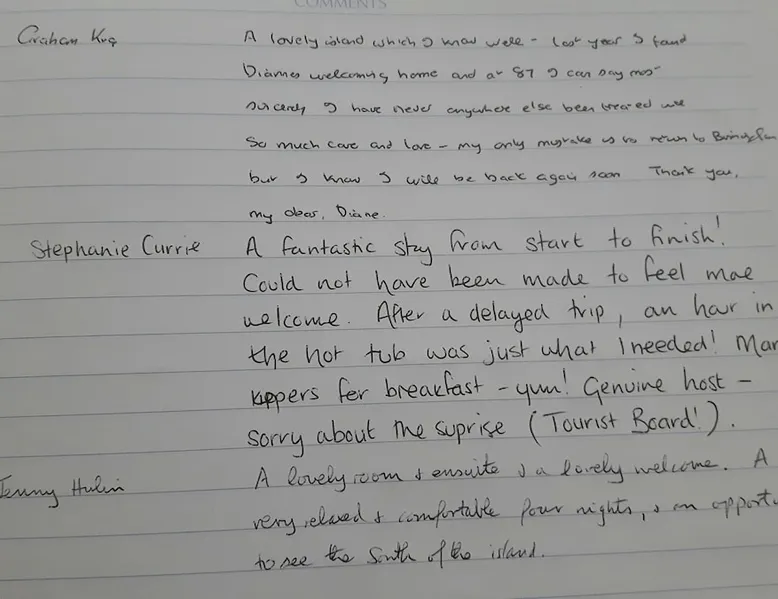 COMMENTS
Graham King A lovely island which I know well - last year I found
Diane's welcoming home and at 87 I can say most
sincerely I have never anywhere else been treated with
So much care and love - my only mistake is to return to
but I know I will be back again soon Thank you,
my dear, Diane.
Stephanie Currie A fantastic stay from start to finish!
Could not have been made to feel more
welcome. After a delayed trip, an hour in
the hot tub was just what I needed! Man
kippers for breakfast - yum! Genuine host -
sorry about the suprise (Tourist Board!).
Jenny A lovely room & ensuite & a lovely welcome. A
very relaxed & comfortable four nights, & an opportu
to see the South of the island.